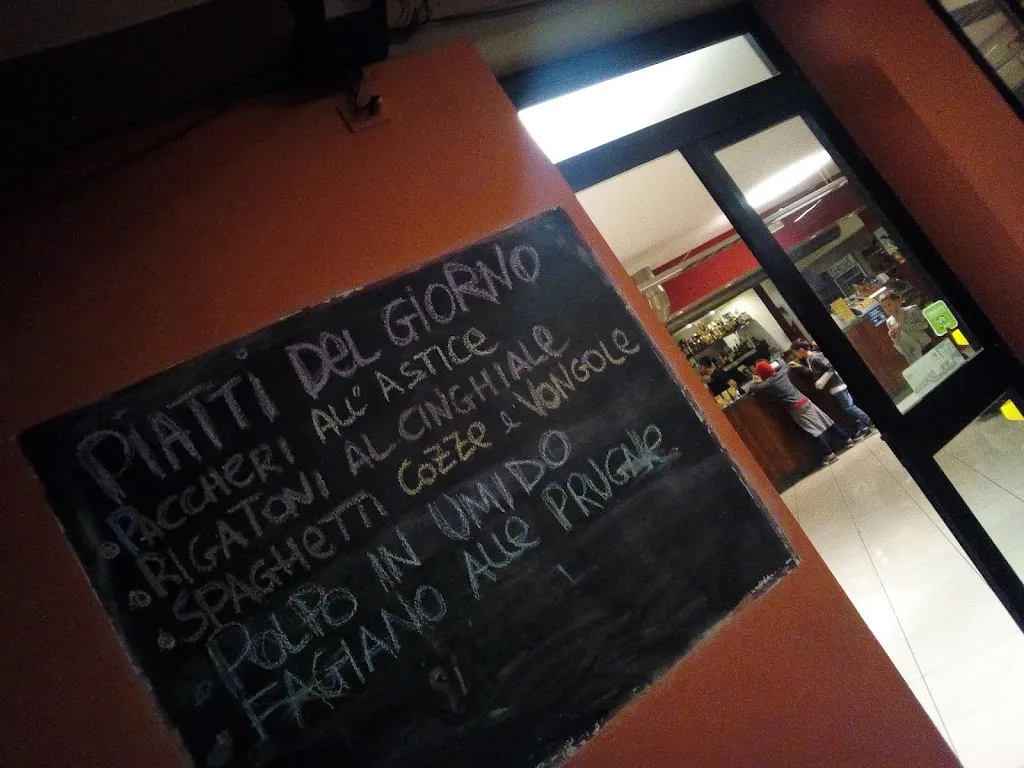 PIATTI DEL GIORNO
• PACCHERI ALL'ASTICE
• RIGATONI AL CINGHIALE
• SPAGHETTI COZZE E VONGOLE
POLPO IN UMIDO
FAGIANO ALLE PRUGNE